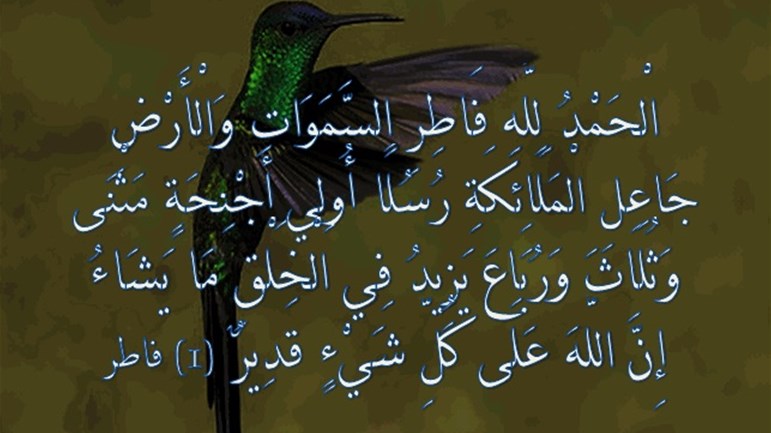 الْحَمْدُ لِلَّهِ فَاطِرِ السَّمَوَاتِ وَالْأَرْضِ
جَاعِلِ الْمَلَائِكَةِ رُسُلًا أُولِي أَجْنِحَةٍ مَثْنَى
وَثُلَاثَ وَرُبَاعَ يَزِيدُ فِي الْخَلْقِ مَا يَشَاءُ
إِنَّ اللهَ عَلَى كُلِّ شَيْءٍ قَدِيرٌ (1) فاطر